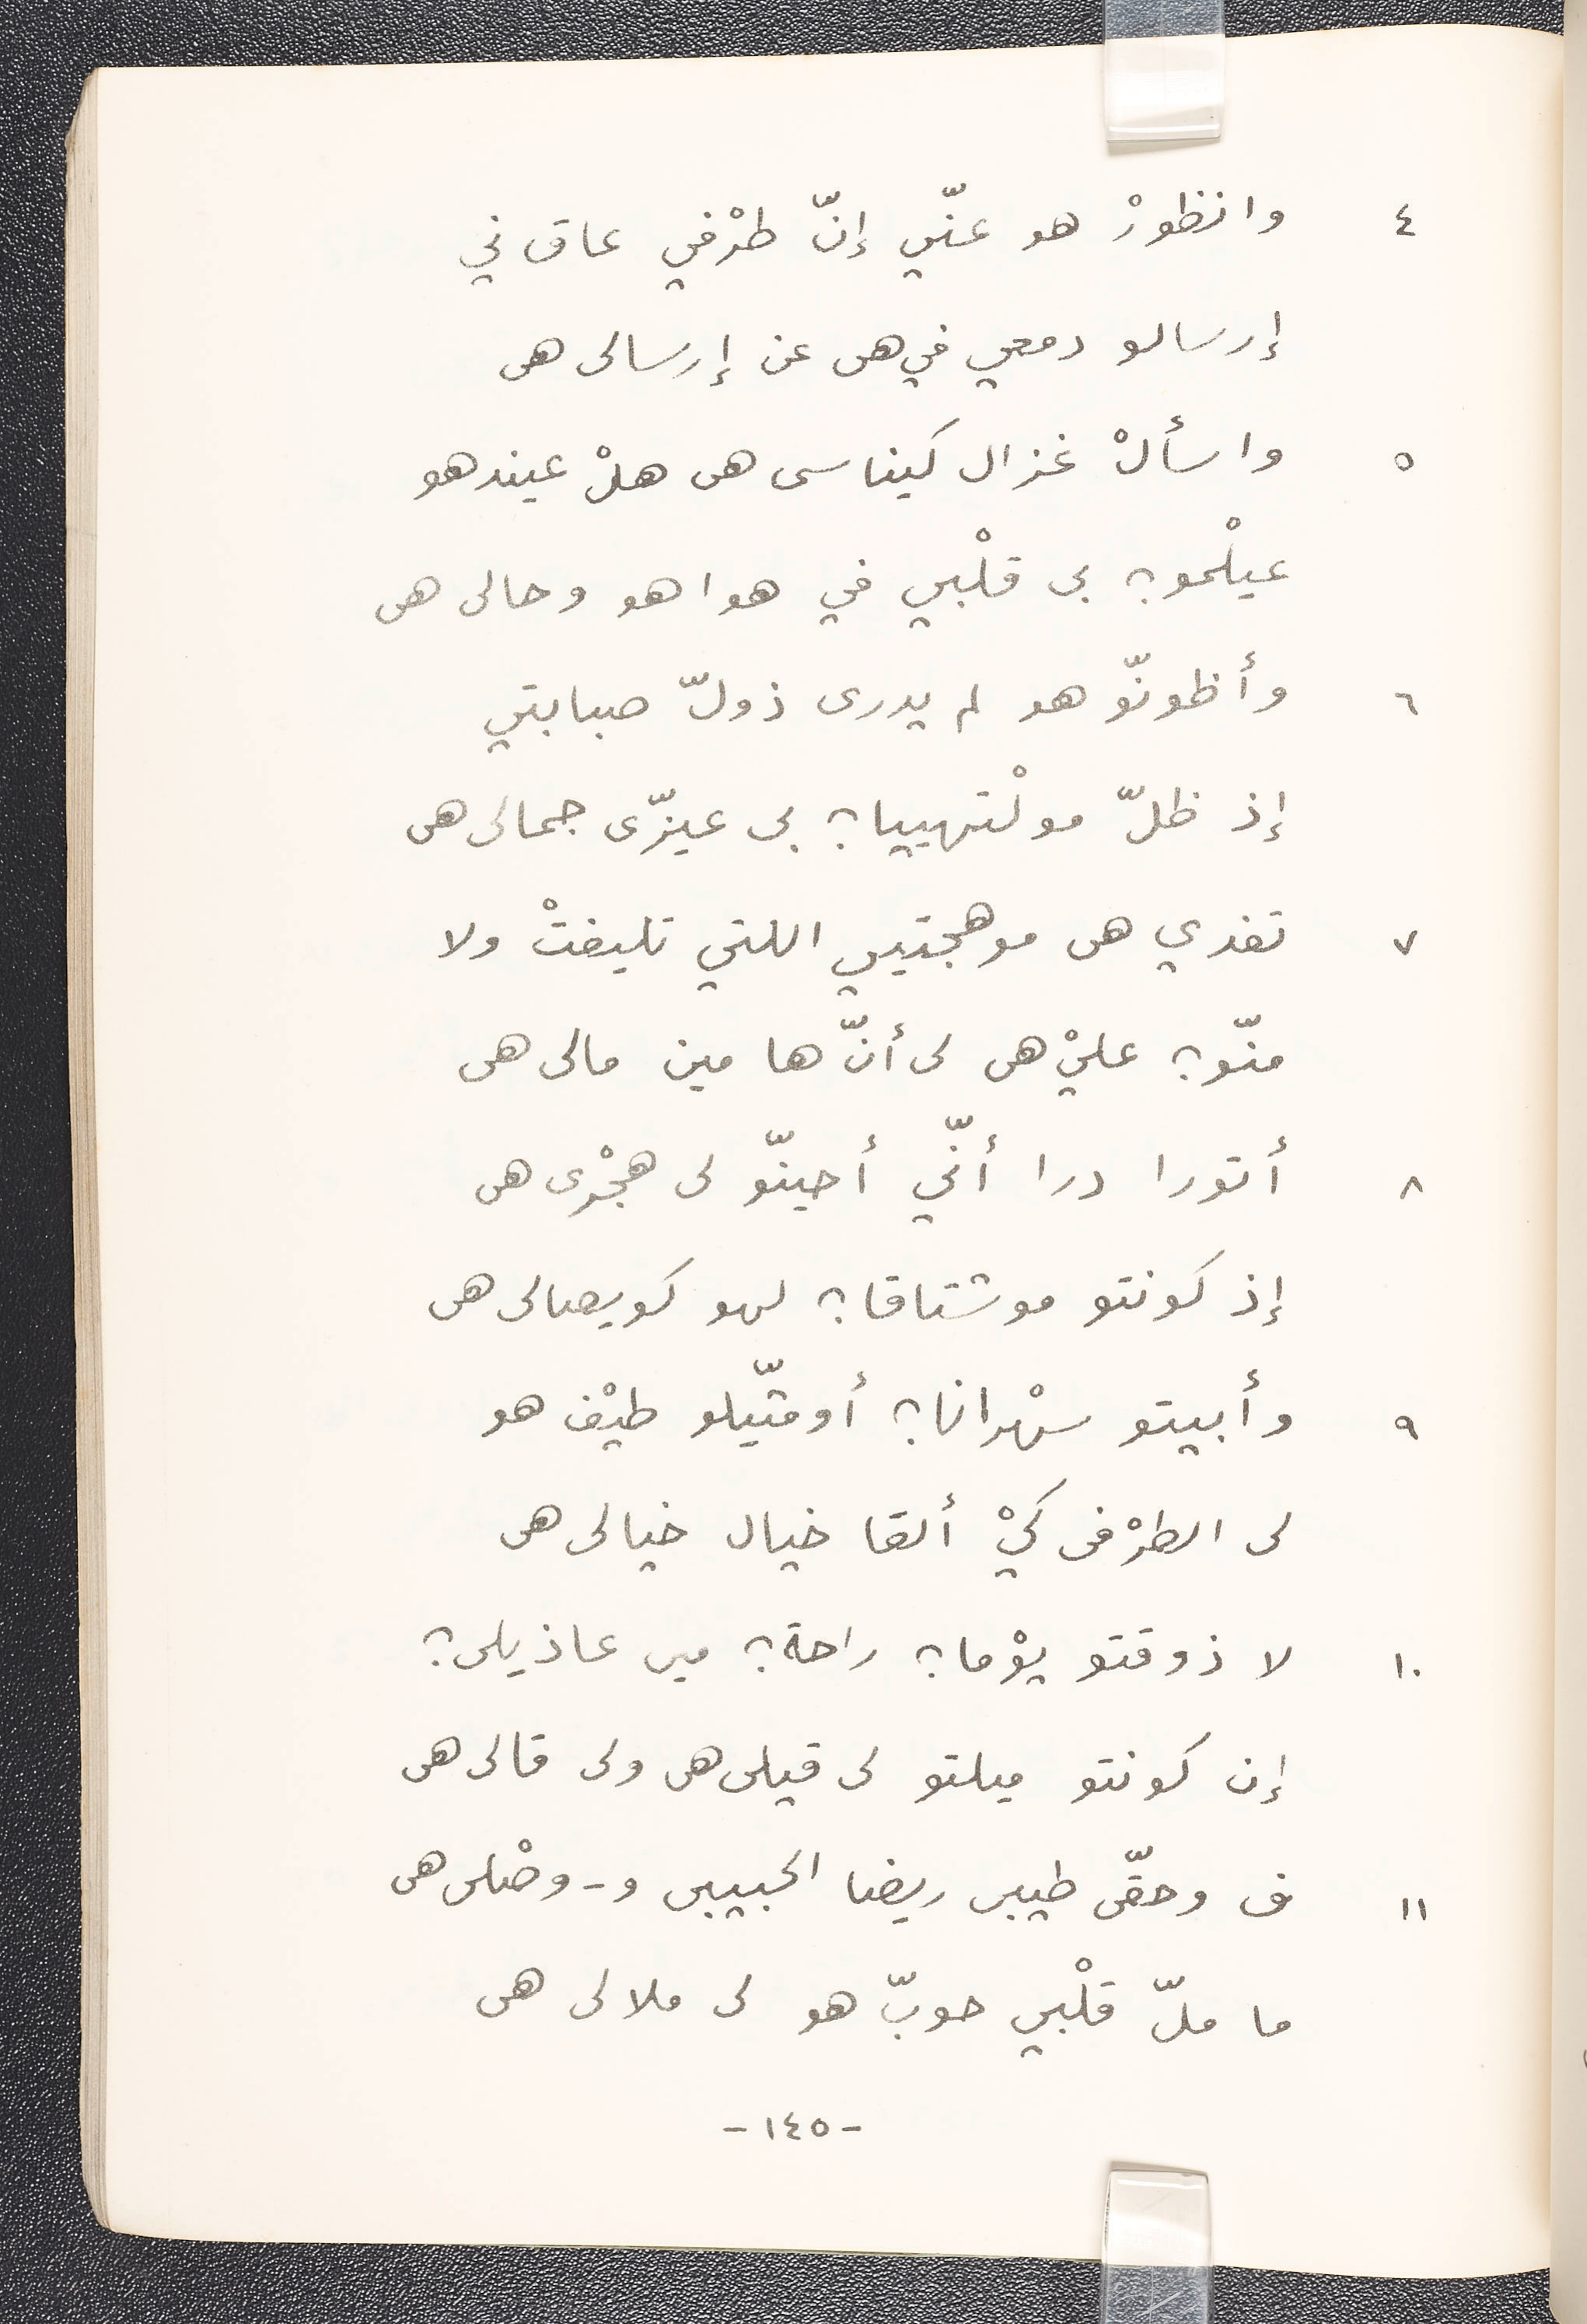 ٤ وانظورْ هو عنّي إنّ طرْفي عاق ني
إرسالو دمعي في هى عن إرسالى هى
٥ واسألْ غزال كيناسى هى هلْ عيندهو
عيلْموء بى قلْبي في هواهو وحالى هى
٦ وأظونّو هو لم يدرى ذولّ صبابتي
إذ ظلّ مولْتهيياء بى عيزّى جمالى هى
٧ تفدي هى موهجتيي اللتي تليفتْ ولا
منّوء عليْ هى لى أنّ ها مين مالى هى
٨ أتورا درا أنّي أحينّو لى هجْرى هى
إذ كونتو موشتاقاء لهو كويصالى هى
٩ وأبيتو سهْراناء أومثّيلو طيْف هو
لى الطرْفى كيْ ألقا خيال خيالى هى
١٠ لا ذوقتو يوْماء راحةء مين عاذيلىء
إن كونتو ميلتو لى قيلى هى ولى قالى هى
١١ ف وحقّى طيبى ريضا الحبيبى و- وصْلى هى
ما ملّ قلْبي حوبّ هو لى ملالى هى
- ١٤٥ -